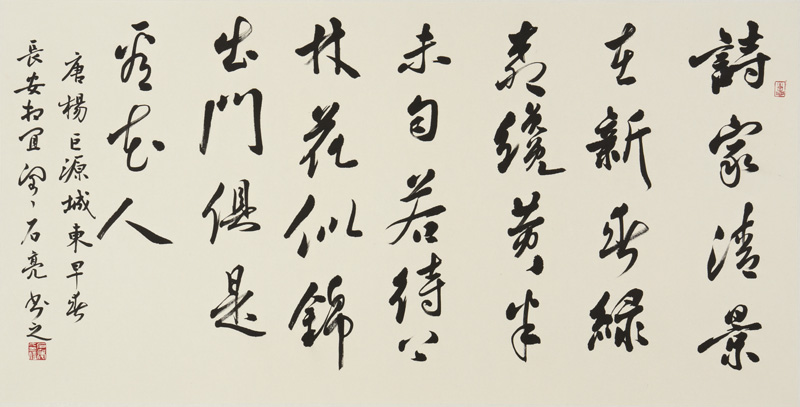 詩家清景
在新春綠
柳纔黃半
未勻若待上
林花似錦
出門俱是
看花人
唐楊巨源城東早春
長安 石亮書之